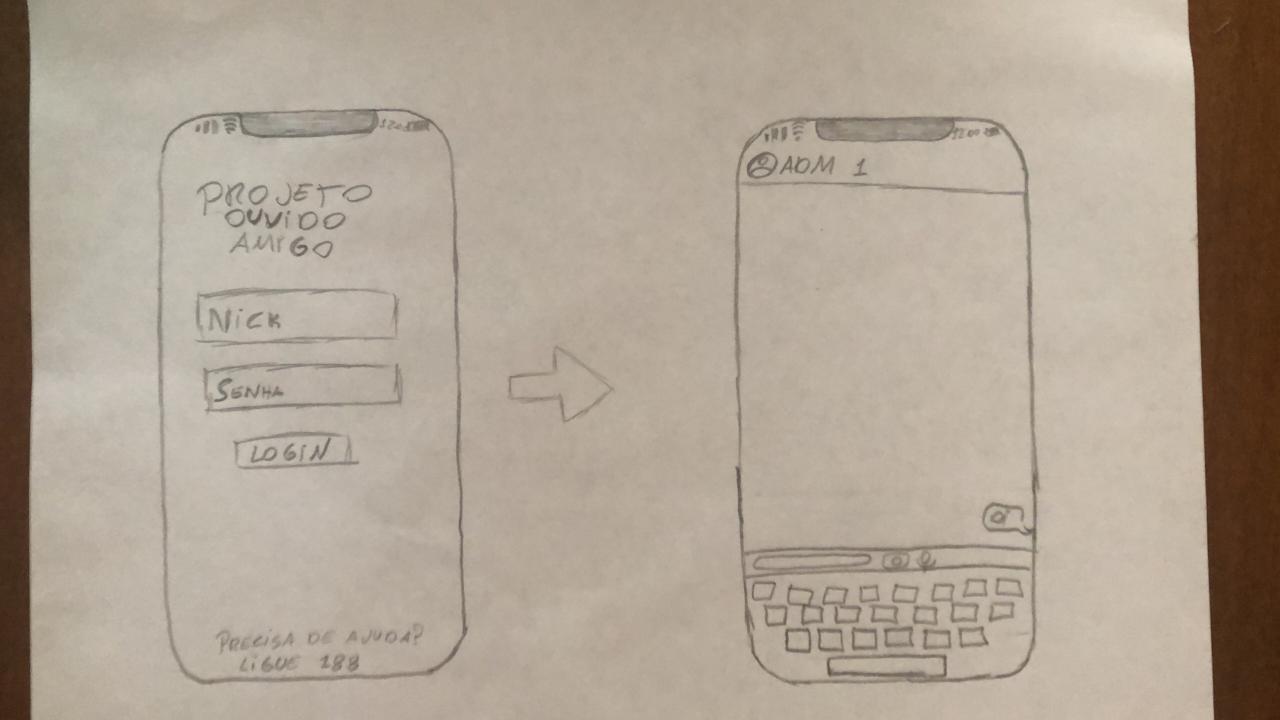 12:00
PROJETO
OUVIDO
AMIGO
NICK
SENHA
LOGIN
PRECISA DE AJUDA?
LIGUE 188
12:00
ADM 1
Oi